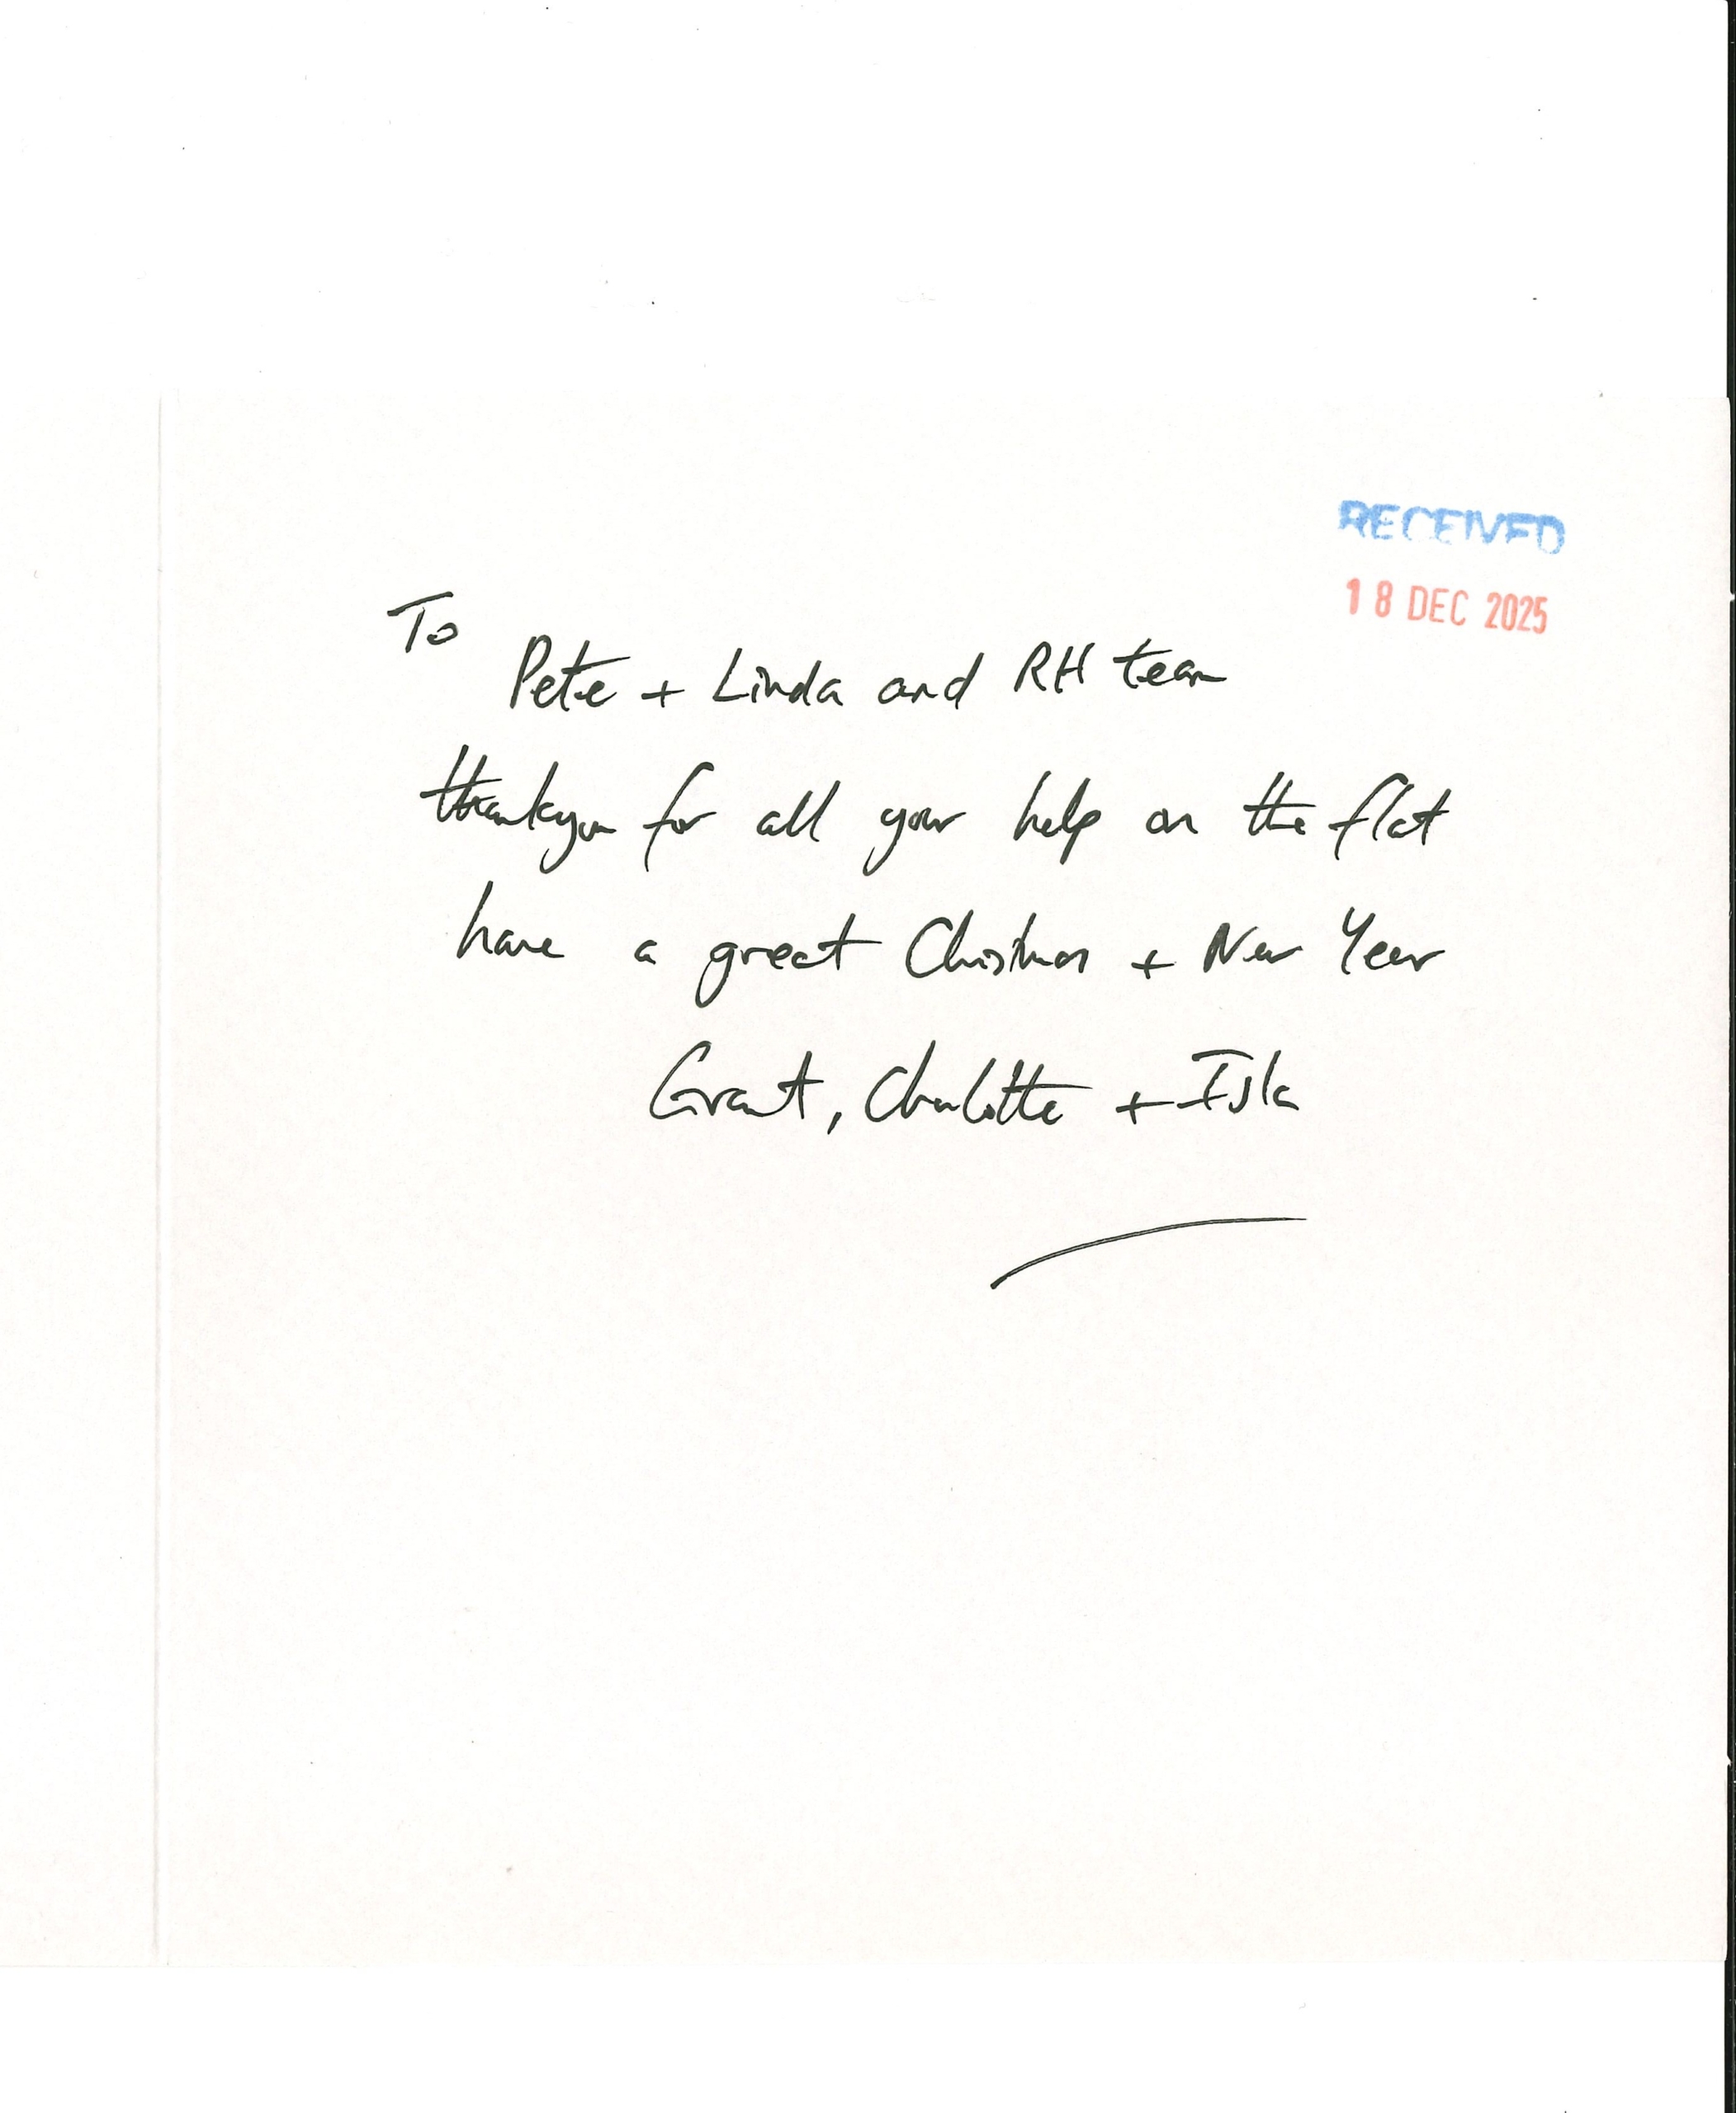 RECEIVED
18 DEC 2025
To
Pete + Linda and RH team
thankyou for all your help on the flat
have a great Christmas + New Year
Grant, Charlotte + Isla